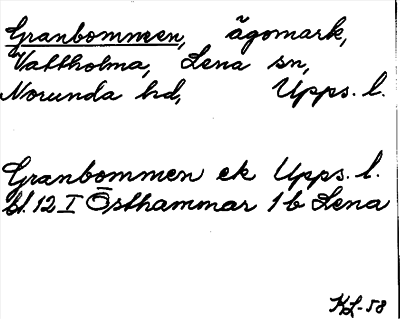 Granbommen, ägomark,
Vattholma, Lena sn,
Norunda hd, Upps. l.
Granbommen ek Upps. l.
bl. 12 I Östhammar 1 b Lena
KL-58